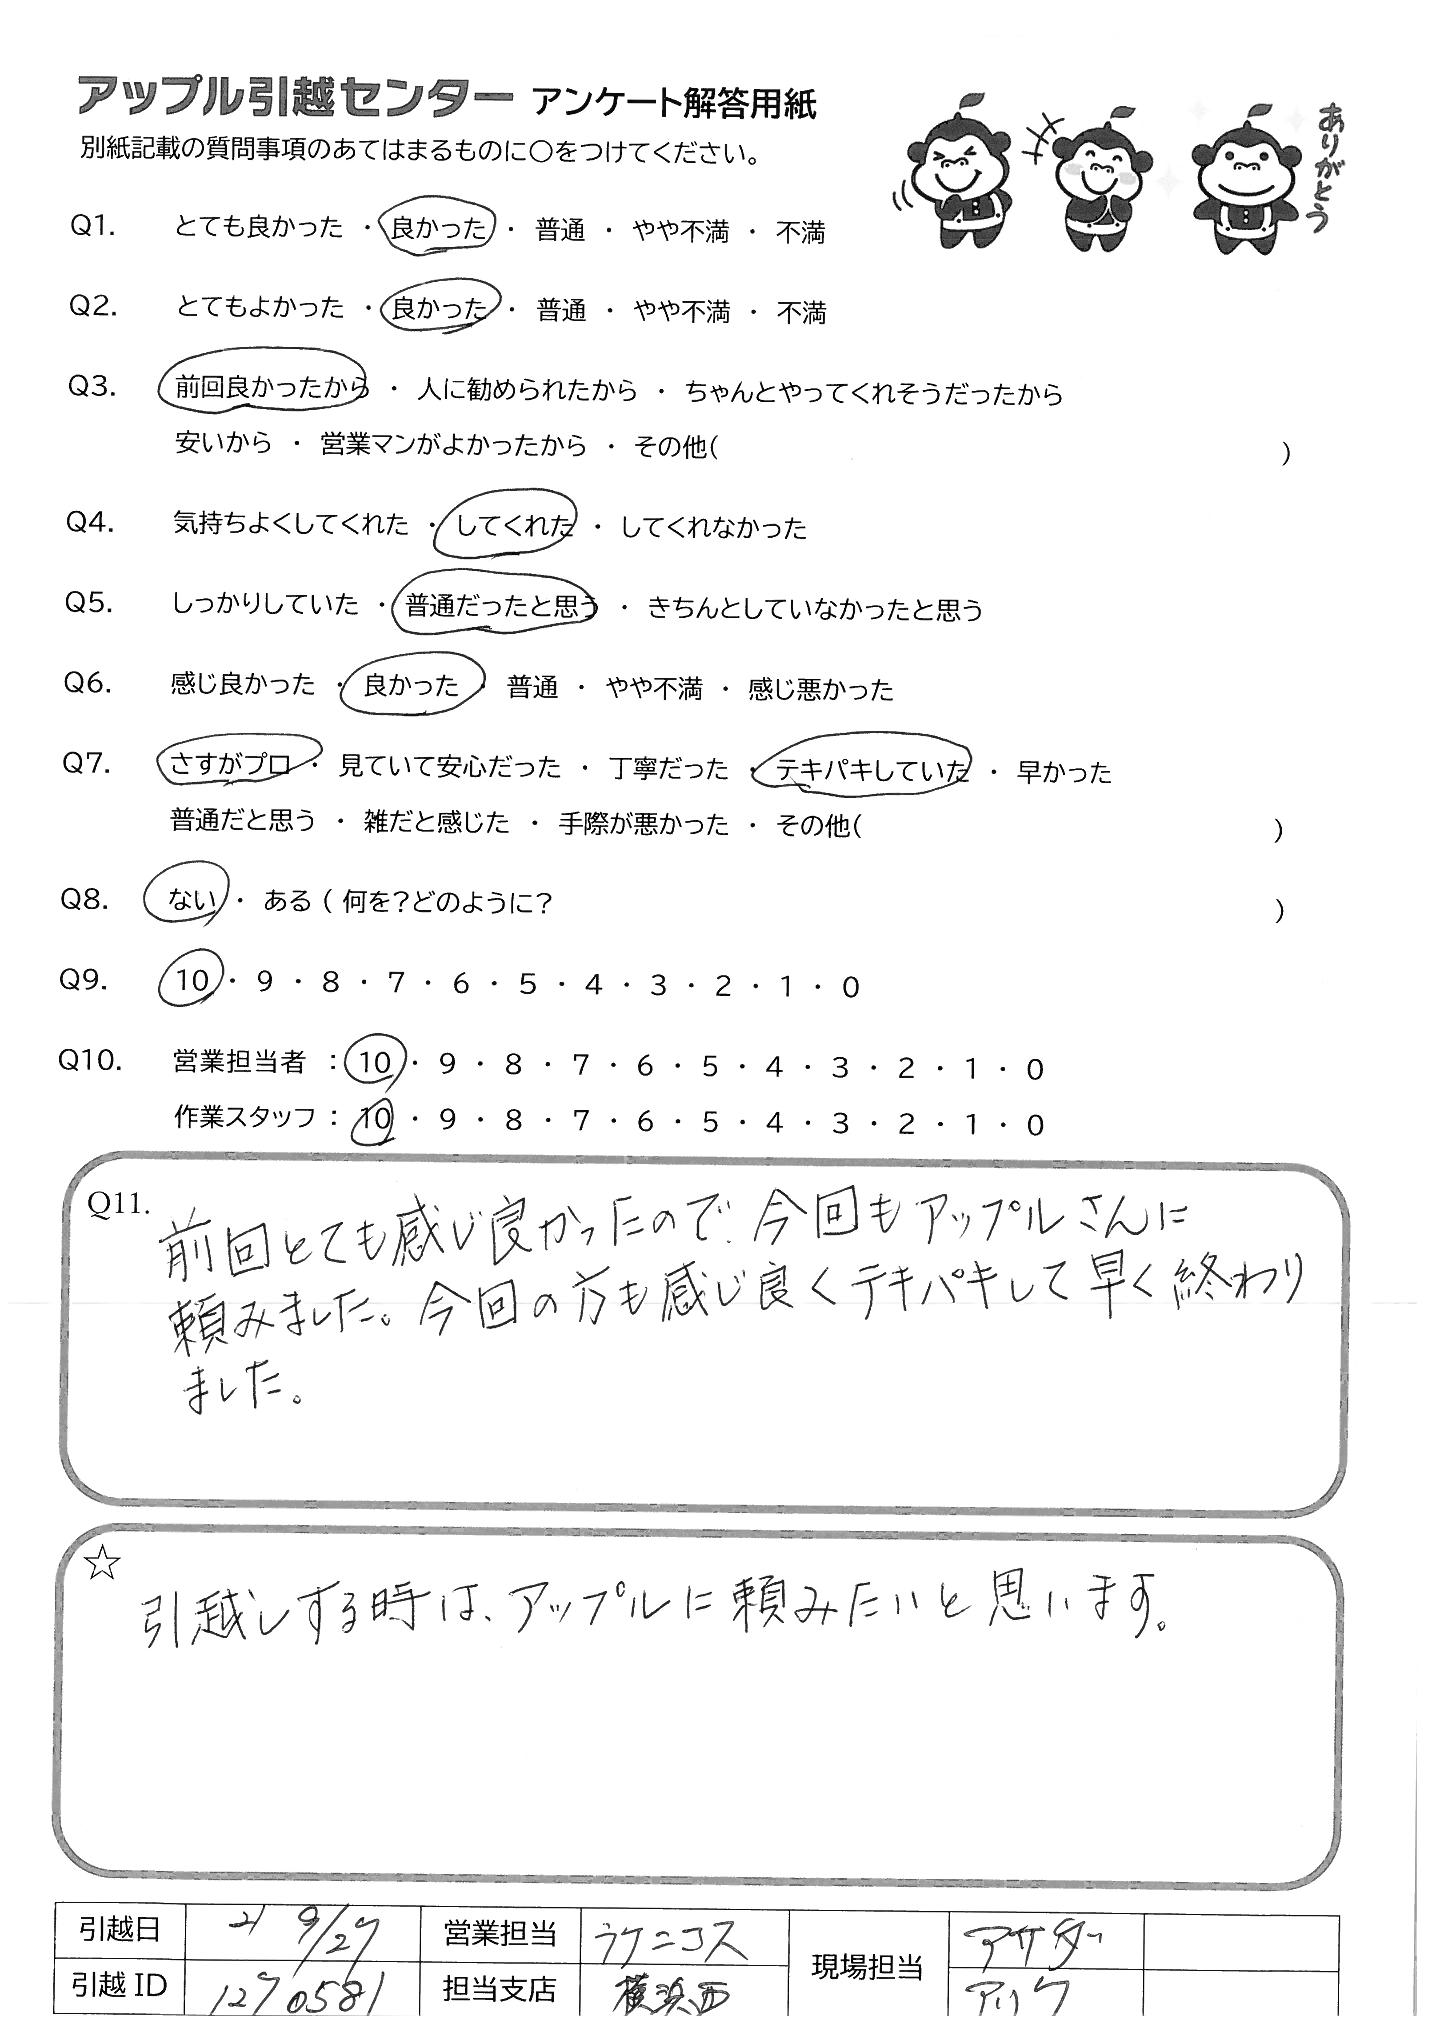 アップル引越センター アンケート解答用紙
別紙記載の質問事項のあてはまるものに○をつけてください。
ありがとう
Q1. とても良かった ・ 良かった ・ 普通 ・ やや不満 ・ 不満
Q2. とてもよかった ・ 良かった ・ 普通 ・ やや不満 ・ 不満
Q3. 前回良かったから ・ 人に勧められたから ・ ちゃんとやってくれそうだったから
安いから ・ 営業マンがよかったから ・ その他( )
Q4. 気持ちよくしてくれた ・ してくれた ・ してくれなかった
Q5. しっかりしていた ・ 普通だったと思う ・ きちんとしていなかったと思う
Q6. 感じ良かった ・ 良かった ・ 普通 ・ やや不満 ・ 感じ悪かった
Q7. さすがプロ ・ 見ていて安心だった ・ 丁寧だった ・ テキパキしていた ・ 早かった
普通だと思う ・ 雑だと感じた ・ 手際が悪かった ・ その他( )
Q8. ない ・ ある ( 何を?どのように? )
Q9. 10 ・ 9 ・ 8 ・ 7 ・ 6 ・ 5 ・ 4 ・ 3 ・ 2 ・ 1 ・ 0
Q10. 営業担当者 : 10 ・ 9 ・ 8 ・ 7 ・ 6 ・ 5 ・ 4 ・ 3 ・ 2 ・ 1 ・ 0
作業スタッフ : 10 ・ 9 ・ 8 ・ 7 ・ 6 ・ 5 ・ 4 ・ 3 ・ 2 ・ 1 ・ 0
Q11. 前回とても感じ良かったので、今回もアップルさんに
頼みました。今回の方も感じ良くテキパキして早く終わり
ました。
☆
引越しする時は、アップルに頼みたいと思います。
引越日 21 9/27 営業担当 現場担当
引越ID 1270581 担当支店 横浜西